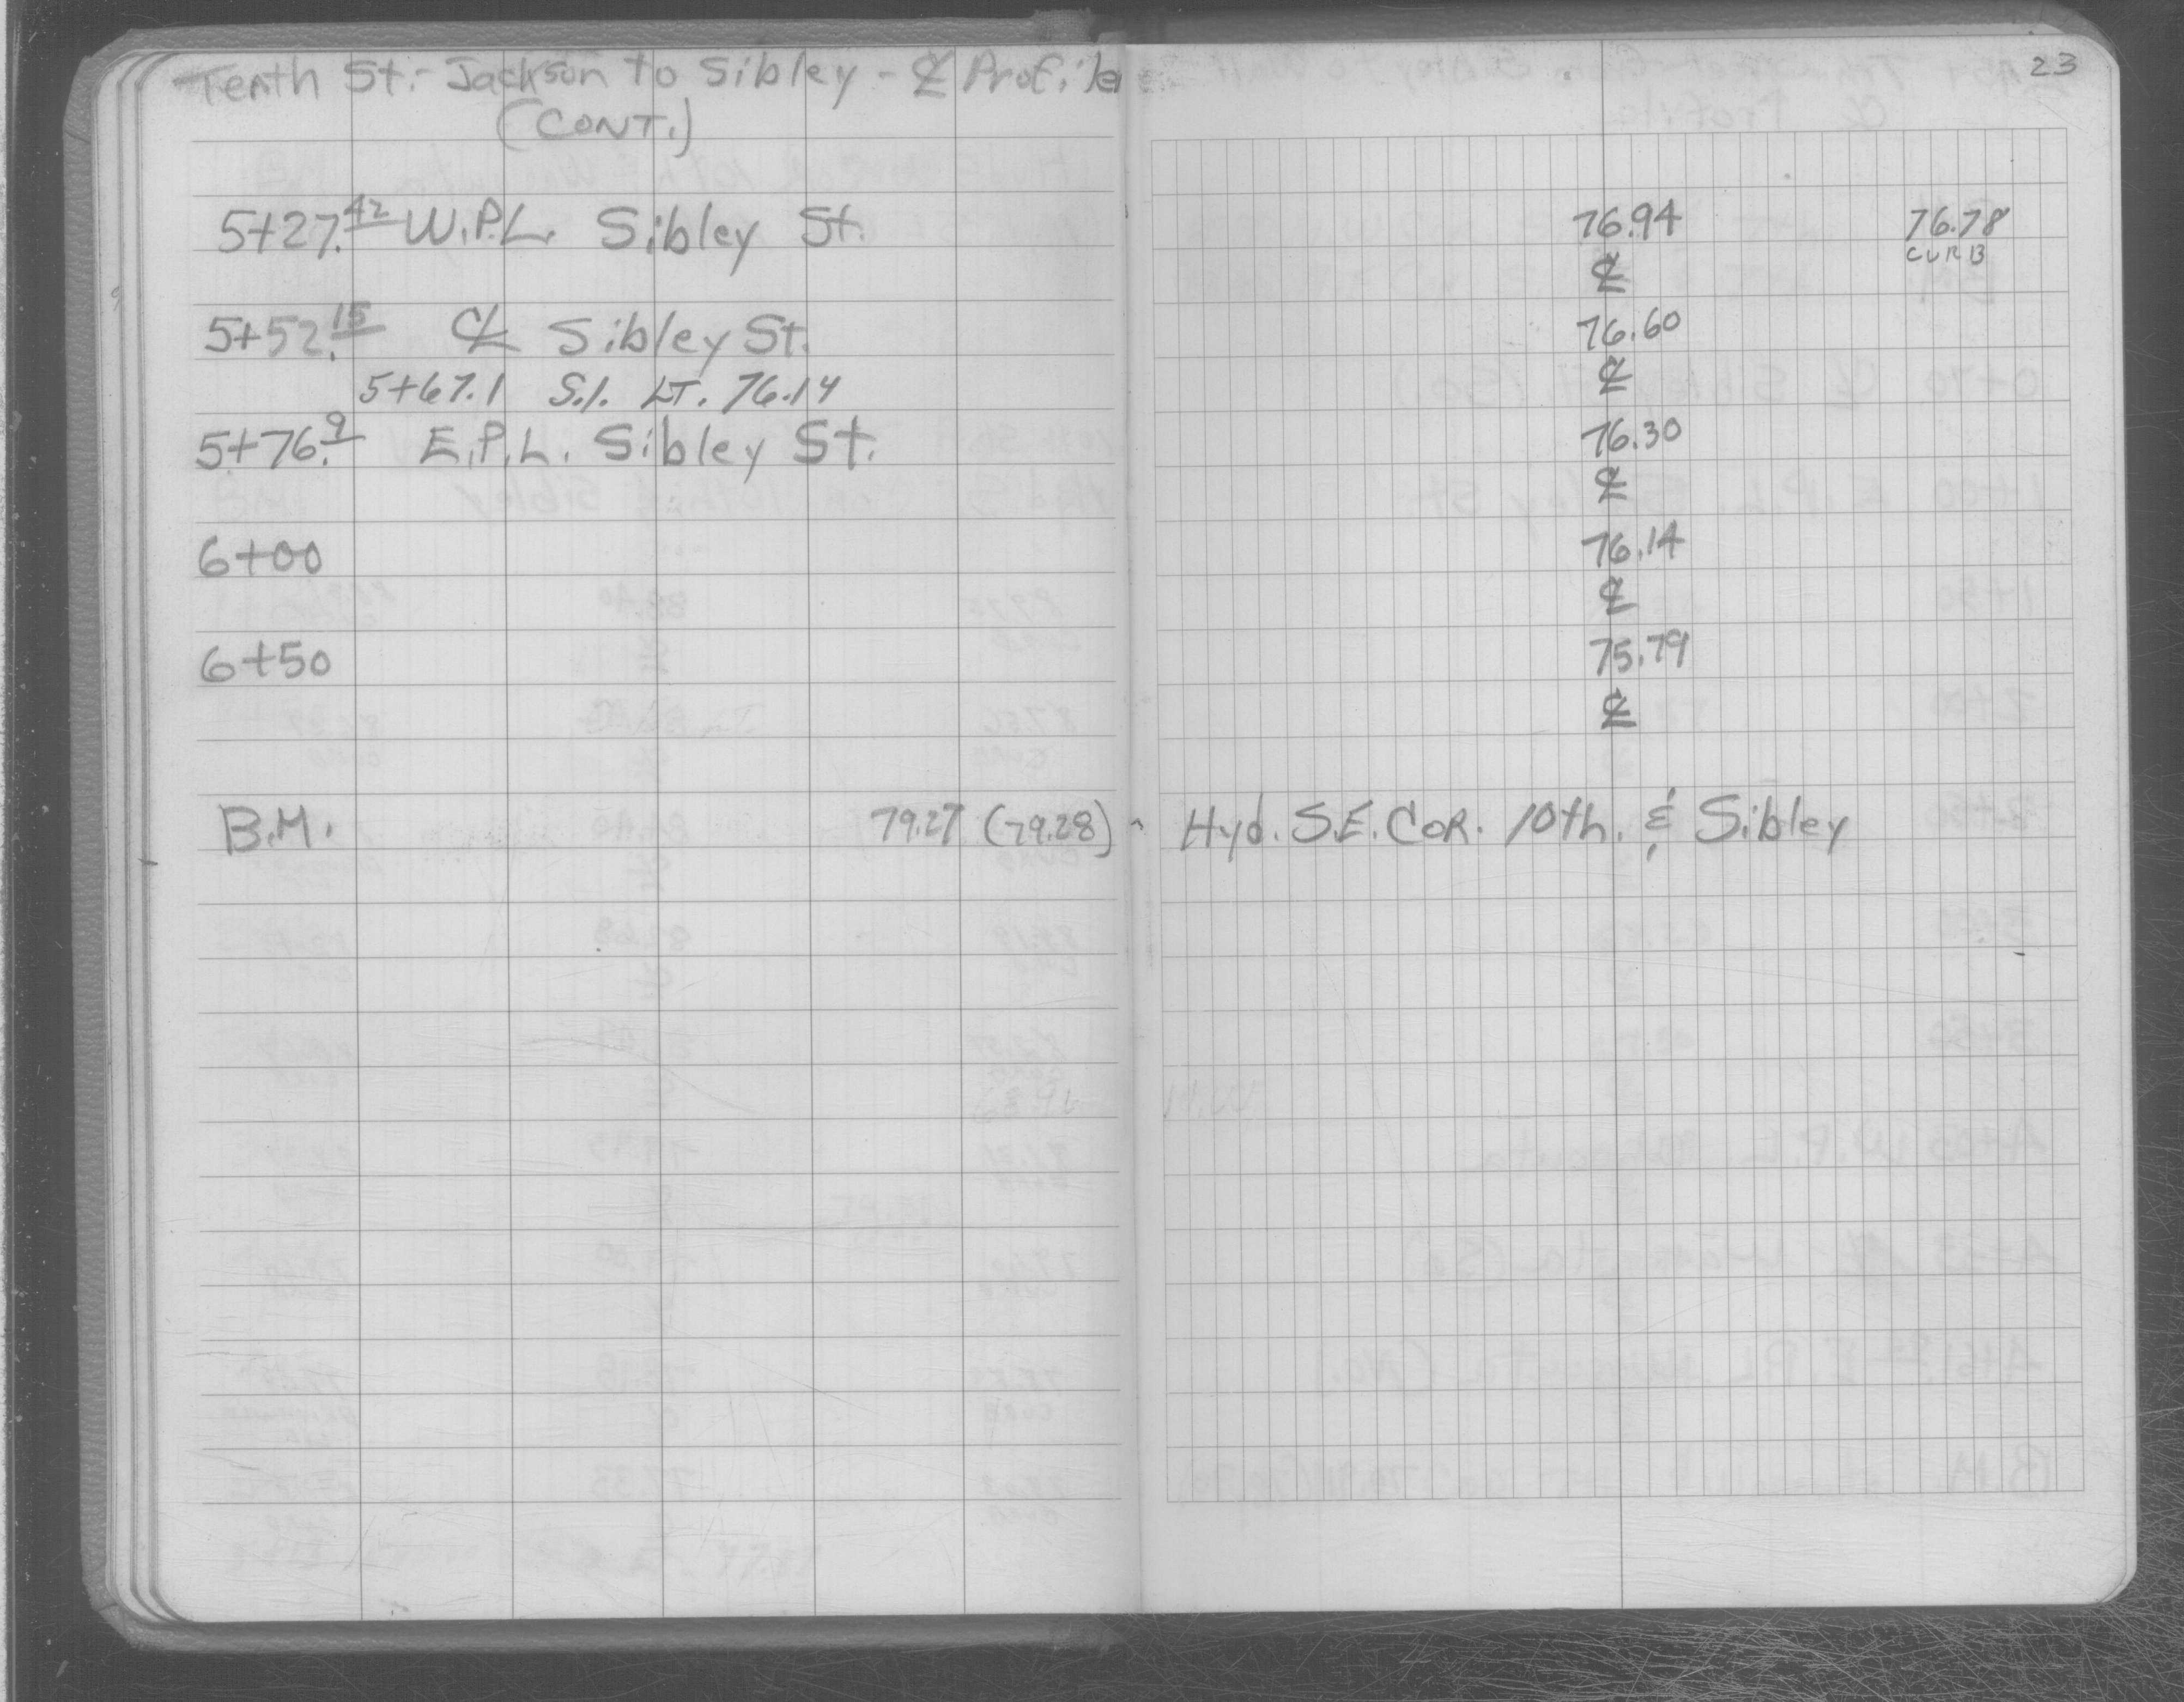 Tenth St.- Jackson to Sibley - ℄ Profile
23
(CONT.)
5+27.42 W.P.L. Sibley St. 76.94 76.78
℄ CURB
5+52.15 ℄ Sibley St. 76.60
5+67.1 S.I. LT. 76.14 ℄
5+76.9 E.P.L. Sibley St. 76.30
℄
6+00 76.14
℄
6+50 75.79
℄
B.M. 79.27 (79.28) - Hyd. S.E. COR. 10th. & Sibley